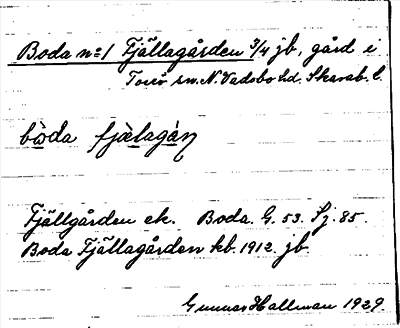 Boda no 1 Fjällagården 3/4 jb, gård i
Torsö sn. N. Vadsbo hd. Skarab. l.
bωda fjælagán
Fjällgården ek. Boda. G. 53. Sj. 85.
Boda Fjällagården kb. 1912. jb
Gunnar Hallman 1929.